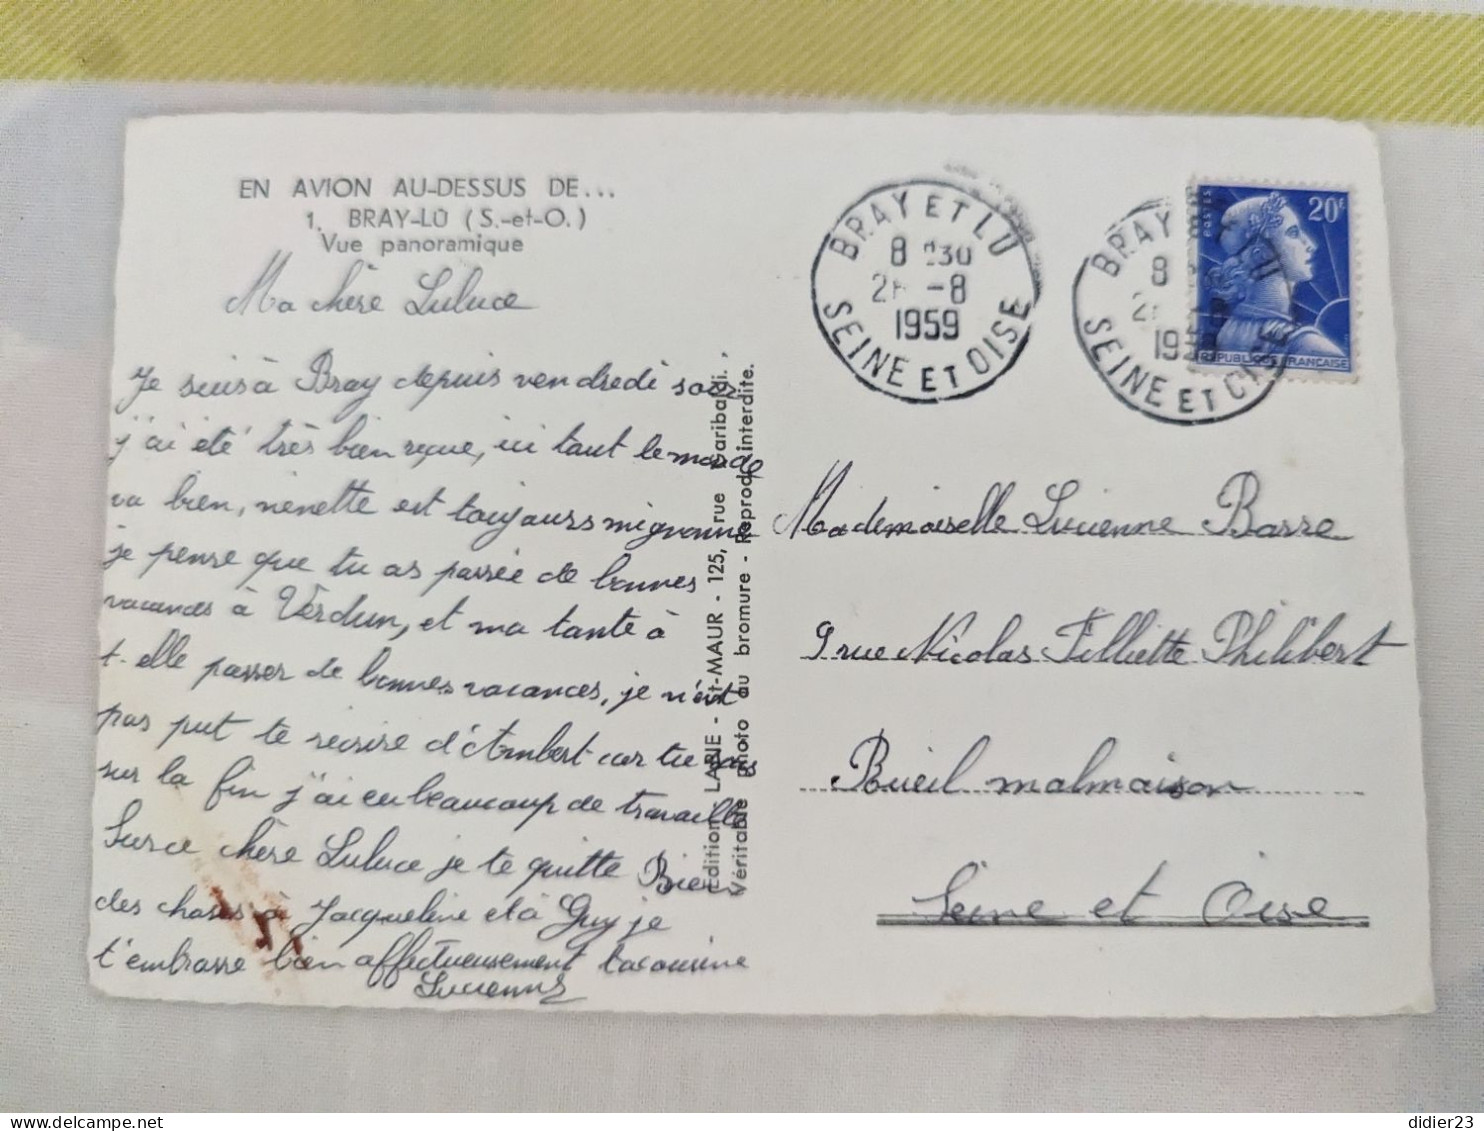 EN AVION AU-DESSUS DE...
1. BRAY-LÛ (S.-et-O.)
Vue panoramique
Ma chère Luluce
Je suis à Bray depuis vendredi soir
j'ai été très bien reçue, ici tout le monde
va bien, nenette est toujours mignonne
je pense que tu as passée de bonnes
vacances à Verdun, et ma tante à
t-elle passer de bonnes vacances, je n'ait
pas put te réécrire d'Ambert car tu sais
sur la fin j'ai eu beaucoup de travaille
Sur ce chère Luluce je te quitte Bien
des choses à Jacqueline et à Guy je
t'embrasse bien affectueusement ta cousine
Lucienne
Edition LAPIE - St-MAUR - 125, rue Garibaldi.
Véritable photo au bromure - Reprod. interdite.
BRAY ET LU
8 30
2 -8
1959
SEINE ET OISE
BRAY
8
2
19
SEINE ET OISE
POSTES
20F
REPUBLIQUE FRANÇAISE
Mademoiselle Lucienne Barre
9 rue Nicolas Filliette Philibert
Rueil malmaison
Seine et Oise
didier23